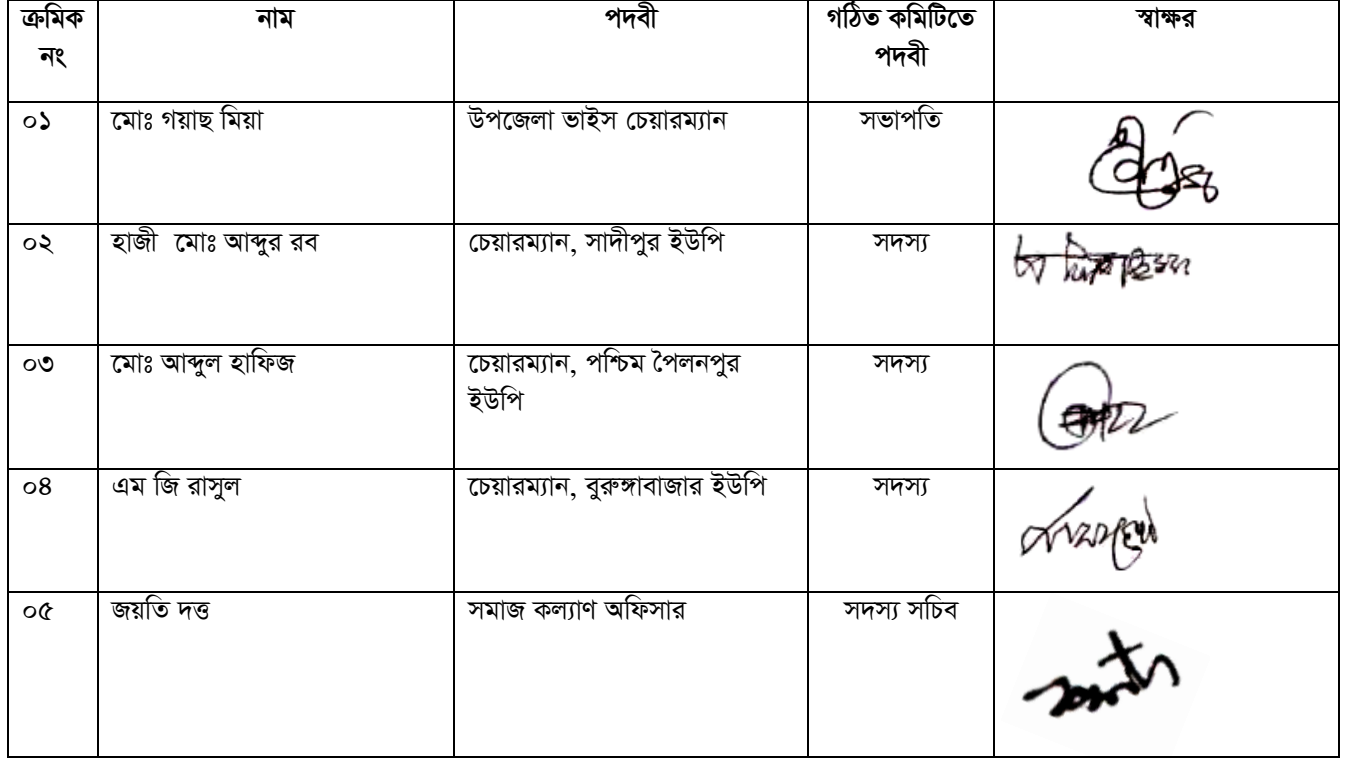 ক্রমিক নং নাম পদবী গঠিত কমিটিতে পদবী স্বাক্ষর
০১ মোঃ গয়াছ মিয়া উপজেলা ভাইস চেয়ারম্যান সভাপতি
০২ হাজী মোঃ আব্দুর রব চেয়ারম্যান, সাদীপুর ইউপি সদস্য
০৩ মোঃ আব্দুল হাফিজ চেয়ারম্যান, পশ্চিম পৈলনপুর ইউপি সদস্য
০৪ এম জি রাসুল চেয়ারম্যান, বুরুঙ্গাবাজার ইউপি সদস্য
০৫ জয়তি দত্ত সমাজ কল্যাণ অফিসার সদস্য সচিব